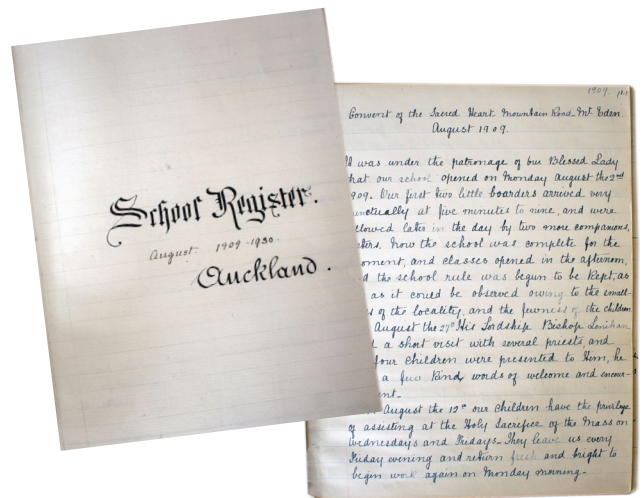 School Register.
August 1909-1930.
Auckland.
1909.
Convent of the Sacred Heart. Mountain Road. Mt Eden.
August 1909.
was under the patronage of our Blessed Lady
that our school opened on Monday August the 2nd
1909. Our first two little boarders arrived very
at five minutes to nine, and were
later in the day by two more companions,
Now the school was complete for the
and classes opened in the afternoon,
the school rule was begun to be kept, as
as it could be observed owing to the small-
of the locality, and the fewness of the children
August the 27th His Lordship Bishop Lenihan
a short visit with several priests, and
four children were presented to Him, he
a few kind words of welcome and encour-
August the 12th our children have the privilege
of assisting at the Holy Sacrifice of the Mass on
Wednesdays and Fridays. They leave us every
Friday evening and return fresh and bright to
begin work again on Monday morning.